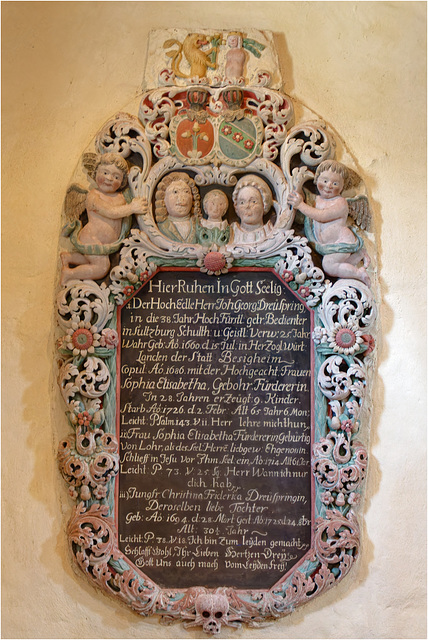 Hier Ruhen In Gott Seelig
1. Der HochEdle Herr Joh Georg Dreüspring
in die 38 Jahr HochFürstl. gdr Bedienter
in Sultzburg Schulth. u Geistl. Verw: 25 Jahr
Wahr Geb: Aõ. 1660. d. 15 Jul. in HerZogl Würt
Landen der Statt Besigheim
Copul. Aõ. 1686. mit der Hochgeacht Frauen
Sophia Elisabetha, Gebohr Fürdererin.
In 28. Jahren erZeügt 9. Kinder.
Starb Aõ 1726. d. 2 Febr. Alt 65 Jahr 6 Mon:
Leicht. Psalm 143. V. 11. Herr lehre mich thun
ii Frau Sophia Elisabetha Fürdererin Gebürtig
von Lohr, al des Sel: Herrn liebgew: Ehgenoßin
Schlieff in Jesu vor Ihm Sel. ein Aõ 1714 Alt
Leicht: P. 73. V. 25 Herr Wann ich nur
dich hab,
iii Jungfr Christina Friderica Dreüspringin,
Deroselben liebe Tochter
Geb: Aõ 1694. d. 28 Mart Gest. Aõ 1725 d. 24
Alt: 30½ Jahr
Leicht: P. 38. V. 18. Ich bin Zum leyden gemacht,
Schlafft Wohl, Ihr Lieben Hertzen Drey:
Gott Uns auch mach vom Leyden Frey!